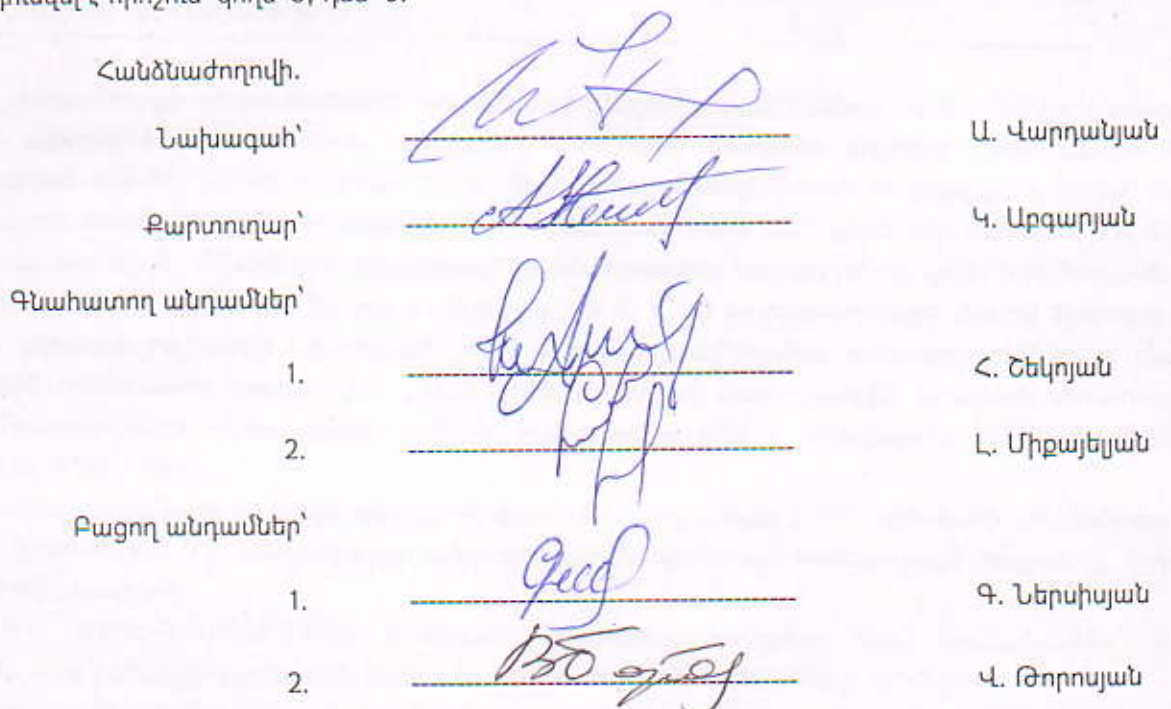 Հանձնաժողովի.
Նախագահ՝ Ա. Վարդանյան
Քարտուղար՝ Կ. Աբգարյան
Գնահատող անդամներ՝
1. Հ. Շեկոյան
2. Լ. Միքայելյան
Բացող անդամներ՝
1. Գ. Ներսիսյան
2. Վ. Թորոսյան